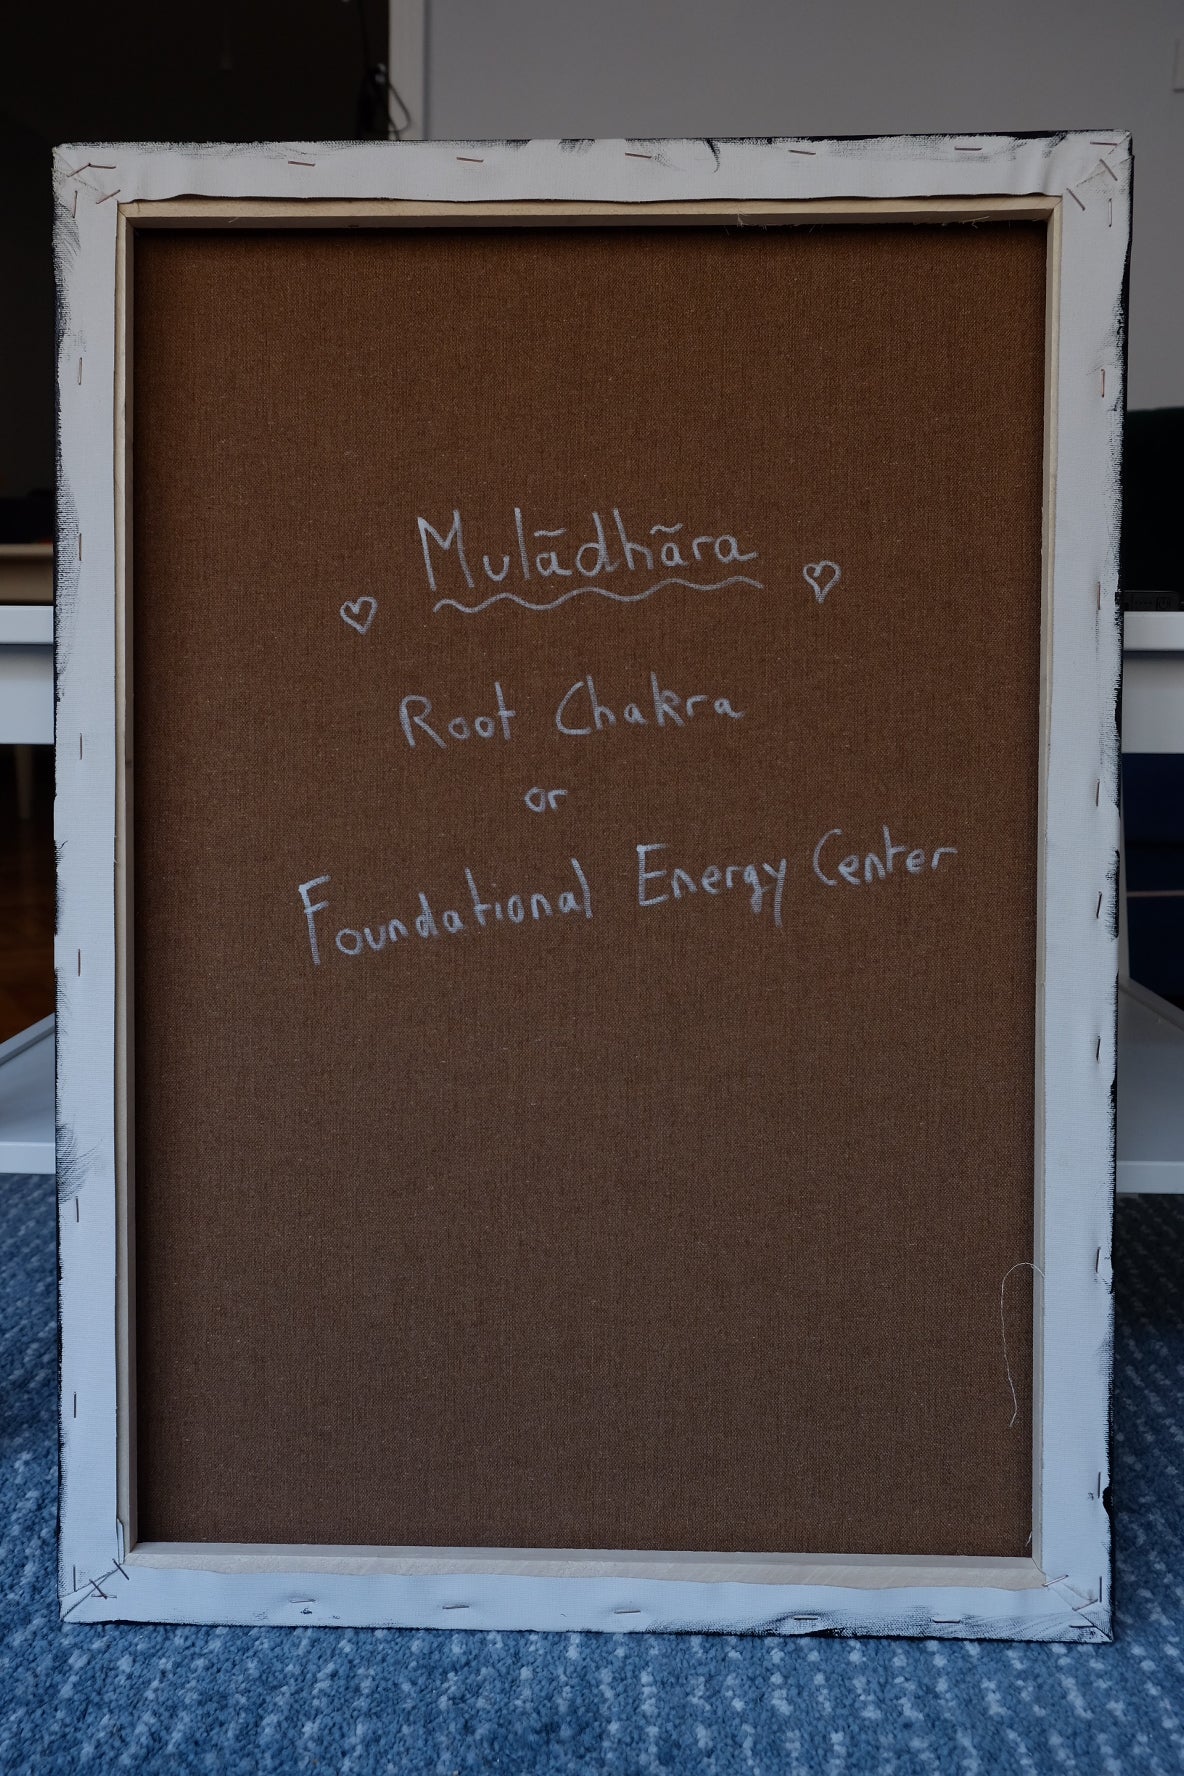 Mulãdhãra
Root Chakra
or
Foundational Energy Center